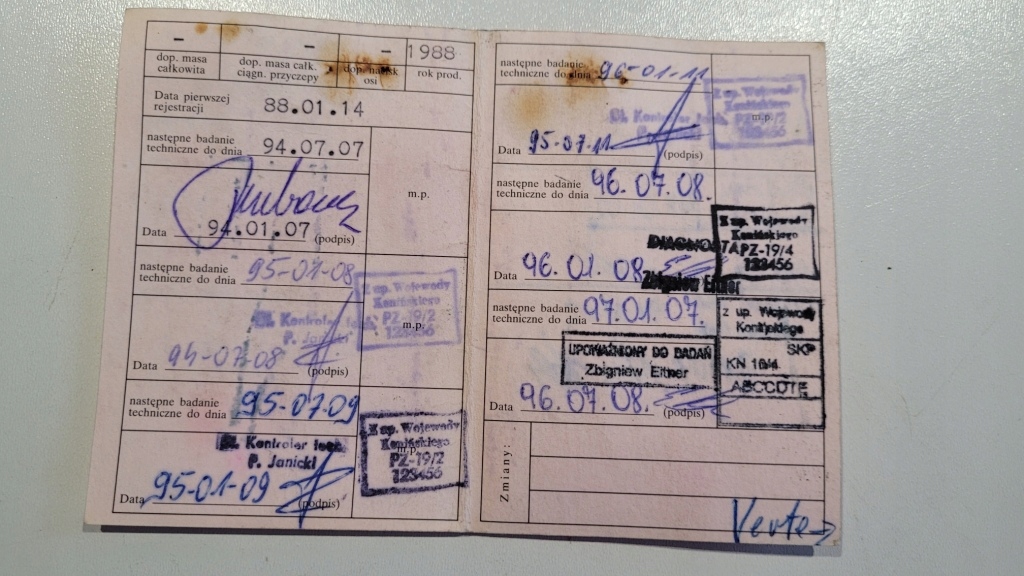 – – – 1988
dop. masa całkowita
dop. masa całk. ciągn. przyczepy
osi
rok prod.
Data pierwszej
rejestracji 88.01.14
następne badanie
techniczne do dnia 94.07.07
m.p.
Data 94.01.07 (podpis)
następne badanie
techniczne do dnia 95-01-08
Z up. Wojewody
Konińskiego
PZ-19/2
123456
m.p.
St. Kontroler tech.
P. Janicki
Data 94-07-08 (podpis)
następne badanie
techniczne do dnia 95-07-09
St. Kontroler tech.
P. Janicki
Z up. Wojewody
Konińskiego
m.p.
PZ-19/2
123456
Data 95-01-09 (podpis)
następne badanie
techniczne do dnia 96-01-11
Z up. Wojewody
Konińskiego
m.p.
PZ-19/2
123456
St. Kontroler tech.
Data 95-07-11 (podpis)
następne badanie
techniczne do dnia 96.07.08.
Z up. Wojewody
Konińskiego
PZ-19/4
123456
DIAGNOSTA
Zbigniew Eitner
Data 96.01.08
następne badanie
techniczne do dnia 97.01.07.
z up. Wojewody
Konińskiego
SKP
KN 16/4
ABCCDTE
UPOWAŻNIONY DO BADAŃ
Zbigniew Eitner
Data 96.07.08. (podpis)
Zmiany:
Verte